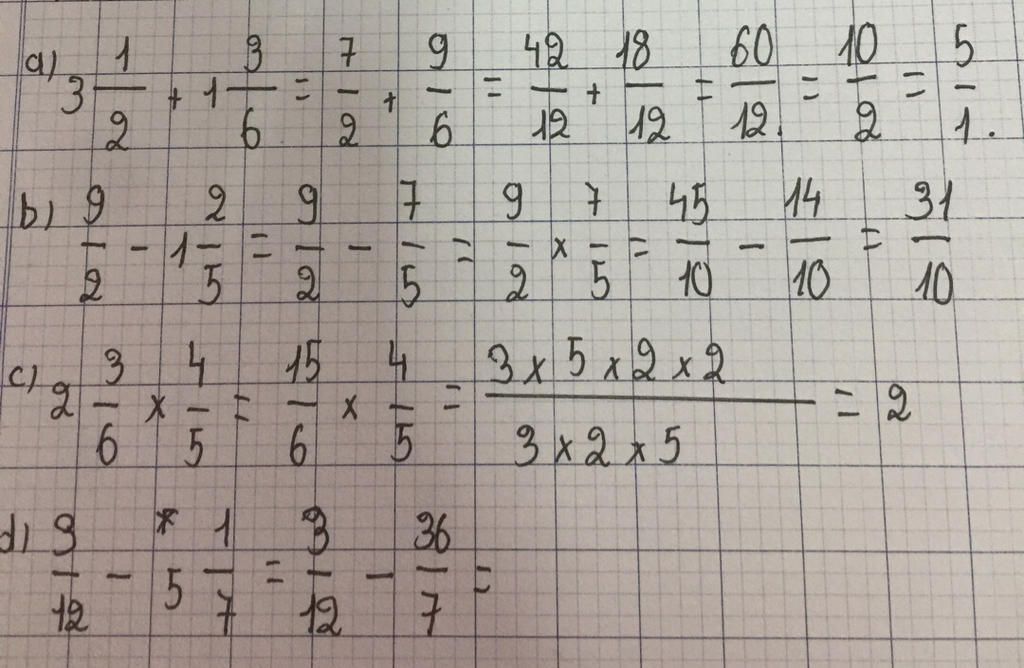 a) 3 1/2 + 1 3/6 = 7/2 + 9/6 = 42/12 + 18/12 = 60/12. = 10/2 = 5/1.
b) 9/2 - 1 2/5 = 9/2 - 7/5 = 9/2 x 7/5 = 45/10 - 14/10 = 31/10
c) 2 3/6 x 4/5 = 15/6 x 4/5 = 3 x 5 x 2 x 2 / 3 x 2 x 5 = 2
d) 3/12 - * 5 1/7 = 3/12 - 36/7 =